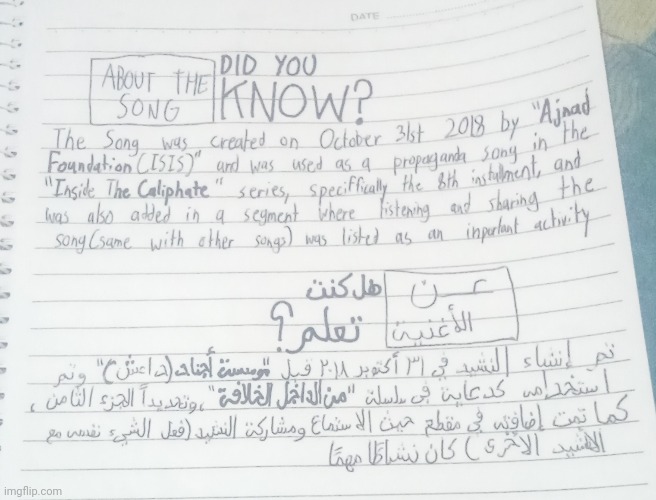 DATE
ABOUT THE
SONG
DID YOU
KNOW?
The Song was created on October 31st 2018 by "Ajnad
Foundation (ISIS)" and was used as a propaganda song in the
"Inside The Caliphate" series, speciffically the 8th installment, and
was also added in a segment where listening and sharing the
song (same with other songs) was listed as an inportant activity
هل كنت
تعلم؟
عن
الأغنية
تم إنشاء النشيد في ٣١ أكتوبر ٢٠١٨ قبل "موسسة أجناد (داعش)" وتم
استخدامه كدعاية في سلسلة "من الداخل الخلافة"، وتحديداً الجزء الثامن،
كما تمت إضافته في مقطع حيث الاستماع ومشاركة النشيد (فعل الشيء نفسه مع
الأخرى) كان نشاطًا مهمًا
imgflip.com